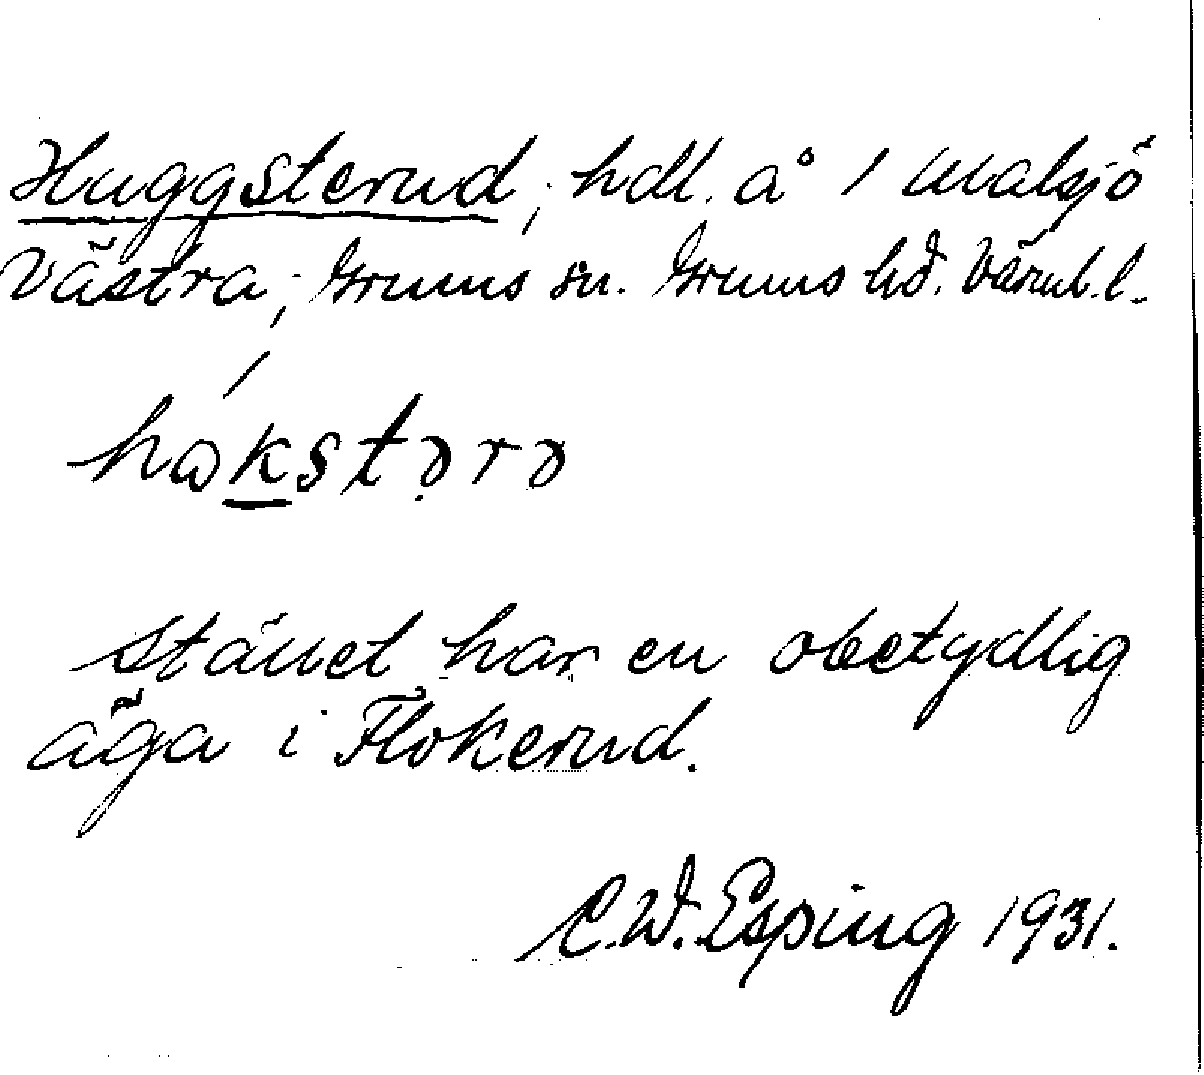 Huggsterud, hdl. å 1 Malsjö
Västra, Grums sn. Grums hd. Värml.l.
hakstərə
Stället har en obetydlig
äga i Flokerud.
C.W. Esping 1931.